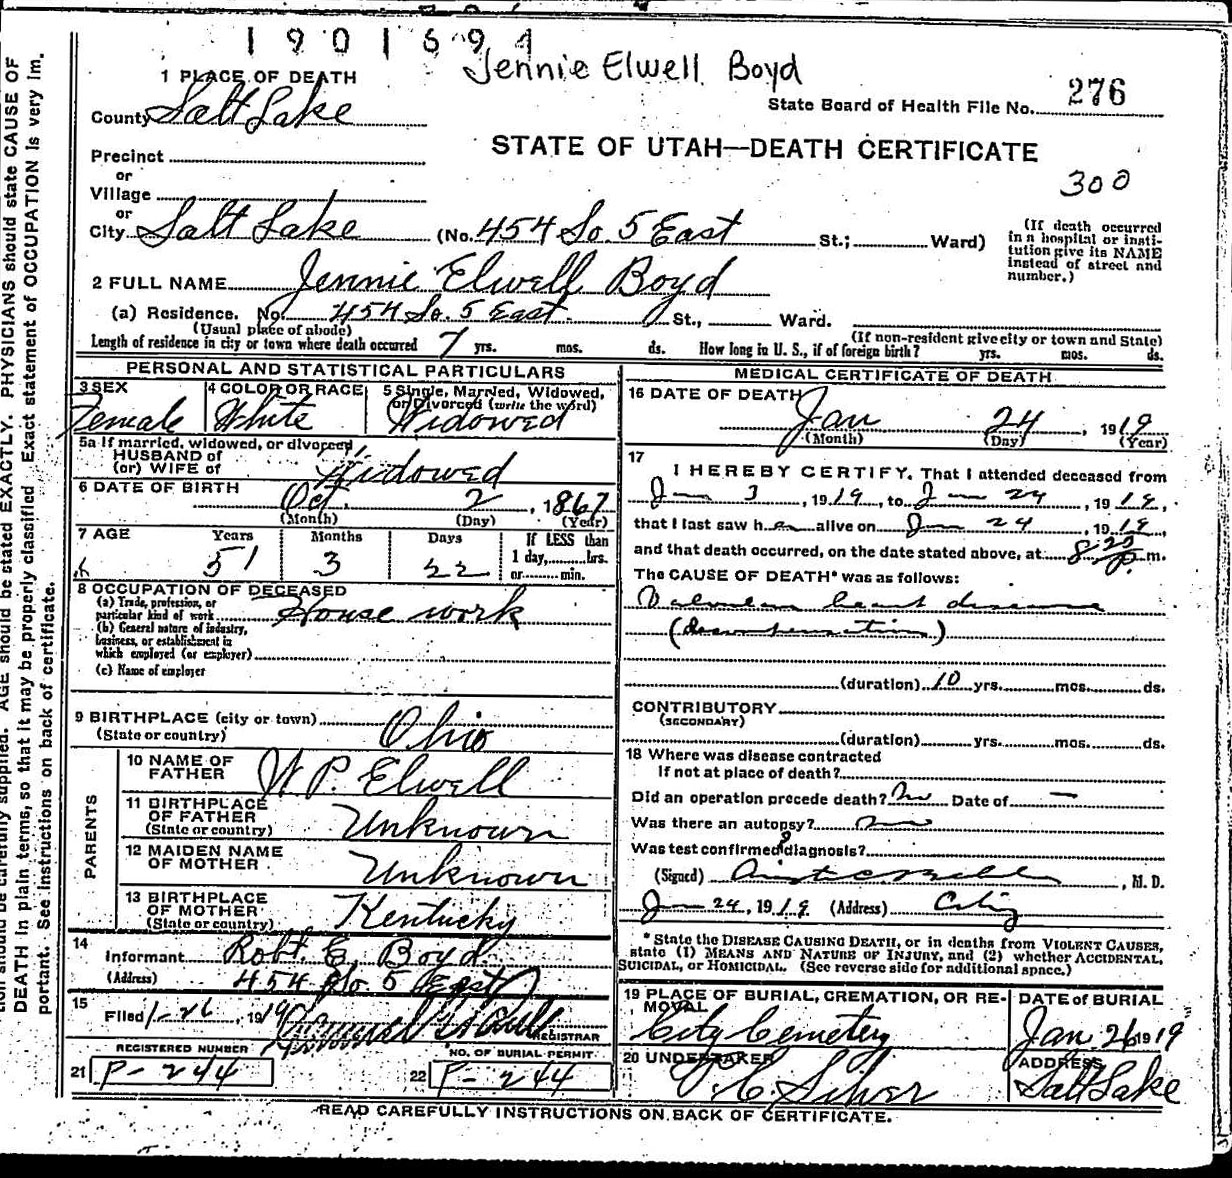 1901694
Jennie Elwell Boyd
1 PLACE OF DEATH
County Salt Lake
State Board of Health File No. 276
STATE OF UTAH—DEATH CERTIFICATE
300
Precinct
or
Village
or
City Salt Lake (No. 454 So. 5 East St.; Ward)
(If death occurred in a hospital or institution give its NAME instead of street and number.)
2 FULL NAME Jennie Elwell Boyd
(a) Residence. No. 454 So. 5 East St., Ward.
(Usual place of abode) (If non-resident give city or town and State)
Length of residence in city or town where death occurred 7 yrs. mos. ds. How long in U. S., if of foreign birth? yrs. mos. ds.
PERSONAL AND STATISTICAL PARTICULARS
3 SEX
Female
4 COLOR OR RACE
White
5 Single, Married, Widowed, or Divorced (write the word)
Widowed
5a If married, widowed, or divorced,
HUSBAND of
(or) WIFE of Widowed
6 DATE OF BIRTH Oct. 2, 1867
(Month) (Day) (Year)
7 AGE Years Months Days If LESS than
1 day, hrs.
or min.
51 3 22
8 OCCUPATION OF DECEASED
(a) Trade, profession, or
particular kind of work House work
(b) General nature of industry,
business, or establishment in
which employed (or employer)
(c) Name of employer
9 BIRTHPLACE (city or town)
(State or country) Ohio
PARENTS
10 NAME OF
FATHER W. P. Elwell
11 BIRTHPLACE
OF FATHER
(State or country) Unknown
12 MAIDEN NAME
OF MOTHER Unknown
13 BIRTHPLACE
OF MOTHER
(State or country) Kentucky
14
Informant Robt. E. Boyd
(Address) 454 So 5 East
15
Filed 1-26, 1919
REGISTRAR
REGISTERED NUMBER
21 P-244
NO. OF BURIAL PERMIT
22 P-244
MEDICAL CERTIFICATE OF DEATH
16 DATE OF DEATH
Jan 24, 1919
(Month) (Day) (Year)
17
I HEREBY CERTIFY, That I attended deceased from
Jan 3, 1919, to Jan 24, 1919,
that I last saw her alive on Jan 24, 1919,
and that death occurred, on the date stated above, at 8 20 P. m.
The CAUSE OF DEATH* was as follows:
Valvular heart disease
(decompensation)
(duration) 10 yrs. mos. ds.
CONTRIBUTORY
(SECONDARY)
(duration) yrs. mos. ds.
18 Where was disease contracted
If not at place of death?
Did an operation precede death? No Date of —
Was there an autopsy? no
Was test confirmed diagnosis?
(Signed) , M. D.
Jan 24, 1919 (Address) City
* State the DISEASE CAUSING DEATH, or in deaths from VIOLENT CAUSES,
state (1) MEANS AND NATURE OF INJURY, and (2) whether ACCIDENTAL,
SUICIDAL, or HOMICIDAL. (See reverse side for additional space.)
19 PLACE OF BURIAL, CREMATION, OR REMOVAL
City Cemetery
DATE of BURIAL
Jan. 26 1919
20 UNDERTAKER
Silver
ADDRESS
Salt Lake
READ CAREFULLY INSTRUCTIONS ON BACK OF CERTIFICATE.
AGE should be stated EXACTLY. PHYSICIANS should state CAUSE OF
DEATH in plain terms, so that it may be properly classified. Exact statement of OCCUPATION is very im-
portant. See instructions on back of certificate.